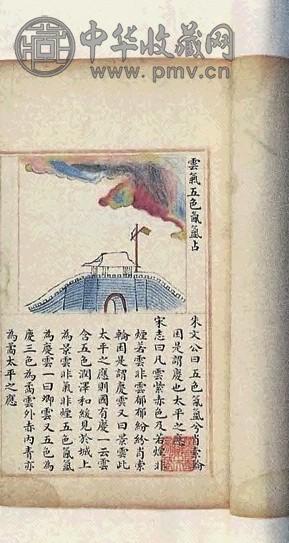 中华收藏网
www.pmv.cn
雲氣五色氤氳占
朱文公曰五色氤氳兮肖索綸
囷是謂慶也太平之應
宋志曰凡雲紫赤色及若煙非
煙若雲非雲郁郁紛紛肖索
輪囷是謂慶雲又曰景雲此
太平之應則國有慶一云雲
含五色潤澤和緩見於城上
為景雲非氣非煙五色氤氳
為慶雲一曰卿雲又五色為
慶三色為矞雲外赤內青亦
為矞太平之應